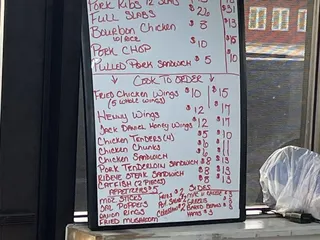 Pork Ribs 12 Slabs
Full Slabs $22 $31
Bourbon Chicken $8 $13
w/ Rice
Pork Chop $10 $15
Pulled Pork Sandwich $5 $10
Cook To Order
Fried Chicken Wings $10 $15
(5 whole wings)
Henny Wings $12 $17
Jack Daniel Honey Wings $12 $17
Chicken Tenders (4) $5 $10
Chicken Chunks $6 $11
Chicken Sandwich $6 $11
Pork Tenderloin Sandwich $8 $13
Ribeye Steak Sandwich $8 $13
Catfish (2 pieces) $8 $13
Appetizers $5 Sides
Moz Sticks
Jal Poppers
Onion Rings
Fried Mushroom
Baked Beans $3